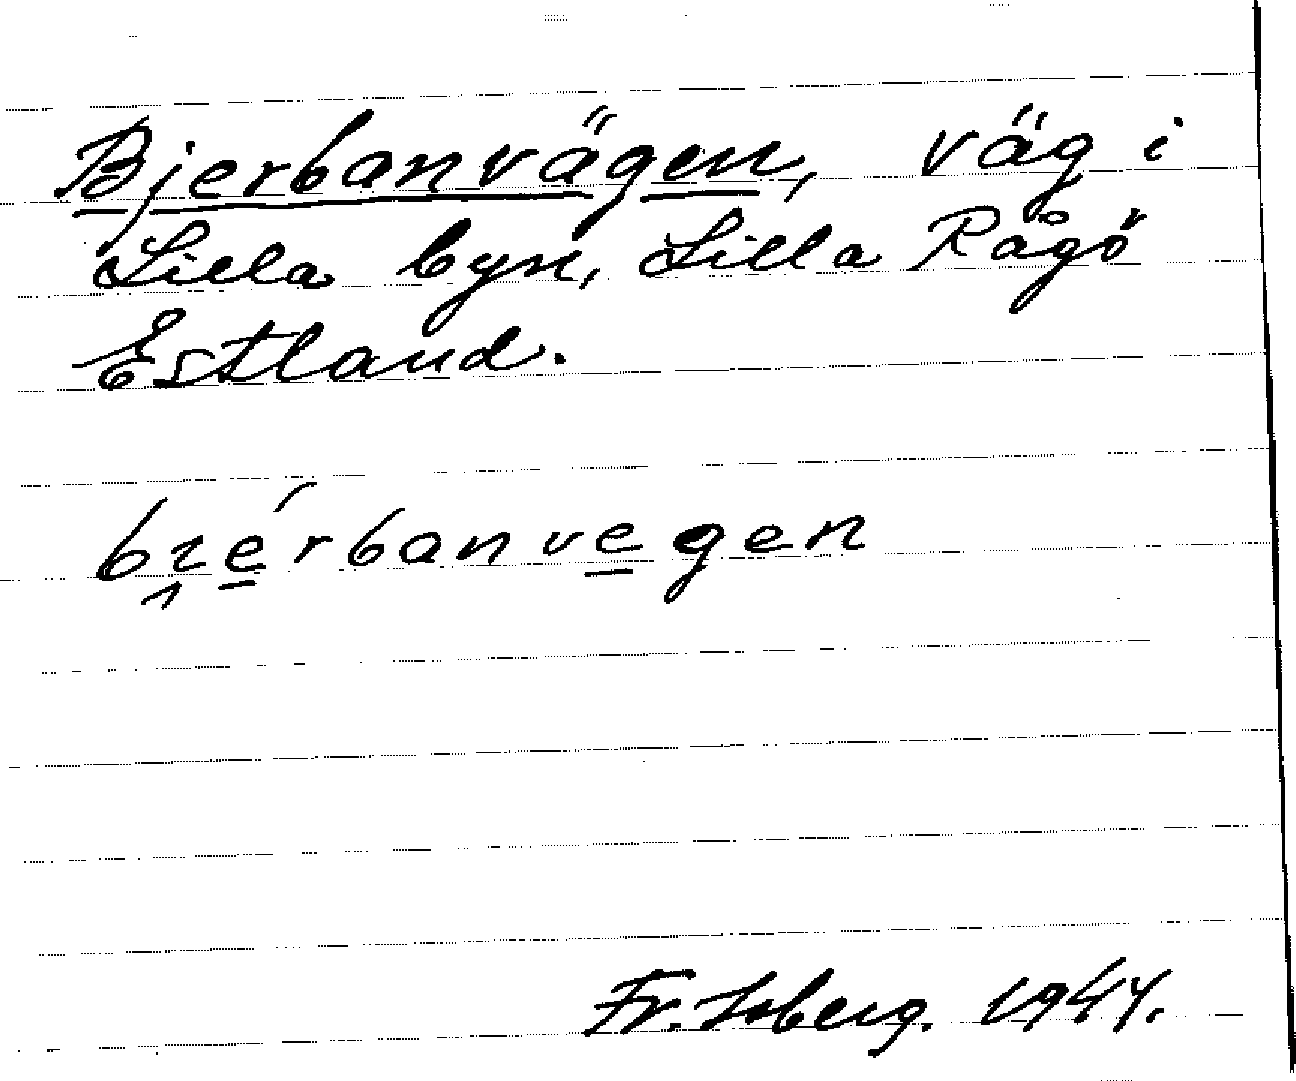 Bjerbanvägen, väg i
Lilla byn, Lilla Rågö
Estland.
bi̯é̲rbanve̲gen
Fr. Isberg. 1944.